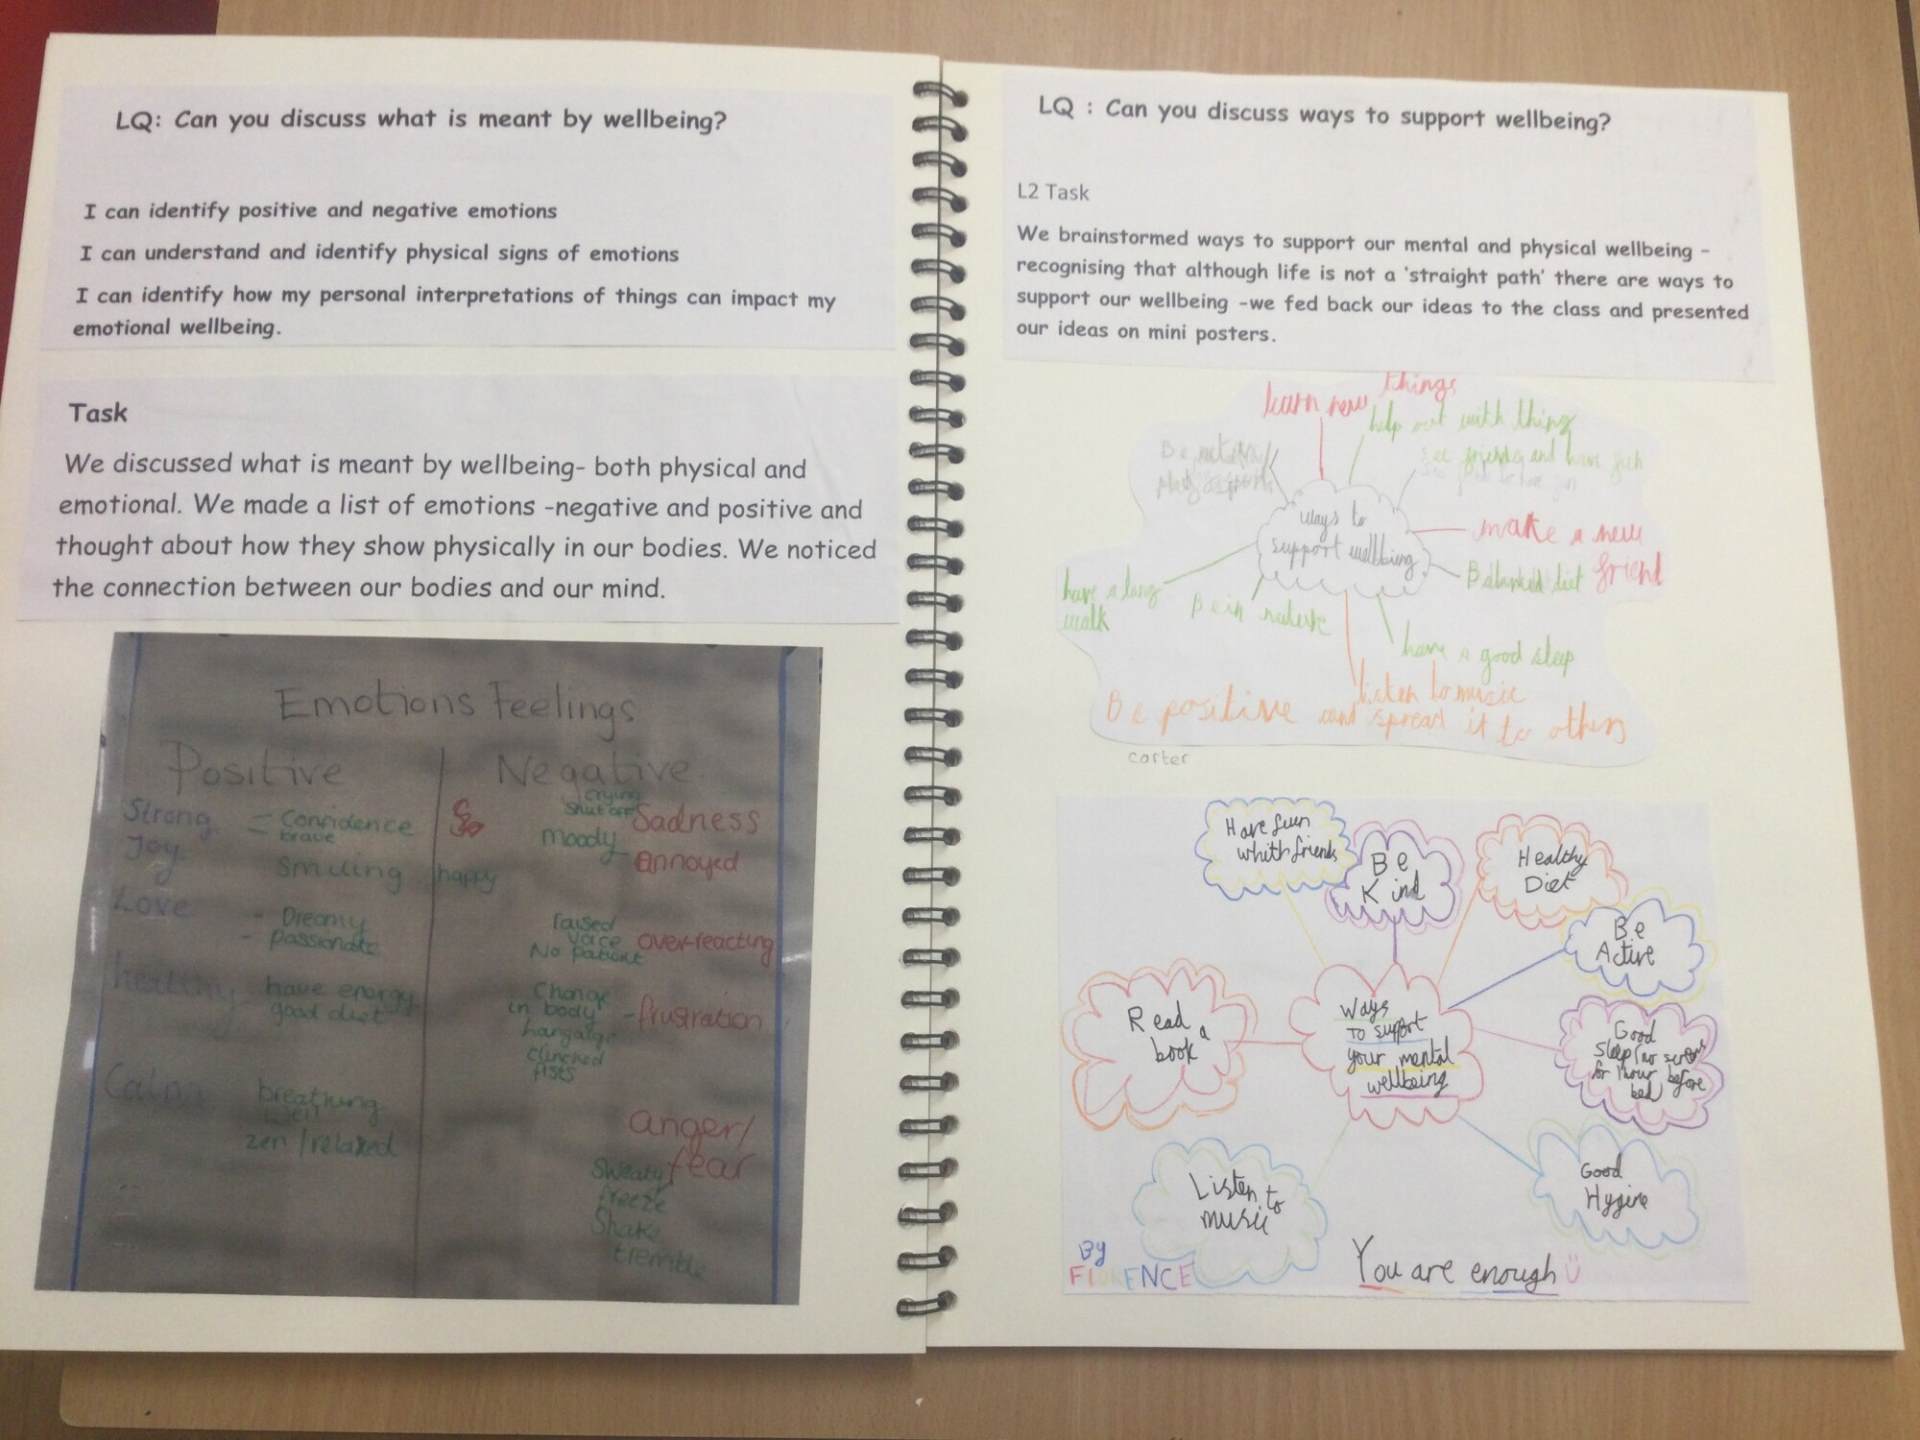 LQ: Can you discuss what is meant by wellbeing?
I can identify positive and negative emotions
I can understand and identify physical signs of emotions
I can identify how my personal interpretations of things can impact my
emotional wellbeing.
Task
We discussed what is meant by wellbeing- both physical and
emotional. We made a list of emotions -negative and positive and
thought about how they show physically in our bodies. We noticed
the connection between our bodies and our mind.
Emotions Feelings
Positive
Strong
= Confidence
brave
Joy
smiling
happy
Love
- Dreamy
- passionate
healthy
have energy
good diet
Calm
breathing
well
zen / relaxed
Negative
crying
shut off
Sadness
moody
annoyed
raised
voice
No patient
over-reacting
Change
in body
langatge
clinched
fists
- frustration
anger/
fear
Sweaty
freeze
Shake
tremble
LQ : Can you discuss ways to support wellbeing?
L2 Task
We brainstormed ways to support our mental and physical wellbeing -
recognising that although life is not a 'straight path' there are ways to
support our wellbeing -we fed back our ideas to the class and presented
our ideas on mini posters.
learn new things
help out with thing
see friends and have
ways to
support wellbeing
make a new
friend
Balanced diet
have a long
walk
Be in nature
have a good sleep
listen to music
Be positive and spread it to others
carter
Have feun
whith friends
Be
Kind
Healthy
Diet
Be
Active
Read a
book
Ways
To support
your mental
wellbeing
Good
Sleep (no screens
for 1 hour before
bed
Listen to
music
Good
Hygine
By
FLORENCE
You are enough